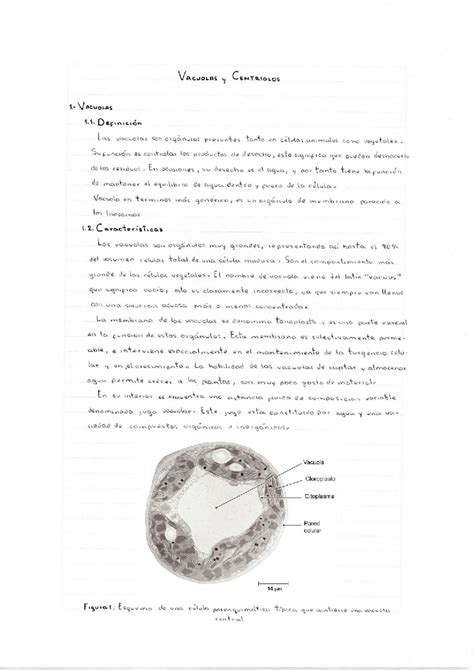 VACUOLAS y CENTRIOLOS
1- VACUOLAS
1.1. Definición
Las vacuolas son orgánulos presentes tanto en células animales como vegetales.
Su función es controlar los productos de desecho, esto significa que pueden deshacerse
de los residuos. En ocasiones, su desecho es el agua, y por tanto tiene la función
de mantener el equilibrio de agua dentro y fuera de la célula.
Vacuola en términos más genérico, es un orgánulo de membrana parecido a
los lisosomas
1.2. Características
Las vacuolas son orgánulos muy grandes, representando así hasta el 90%
del volumen celular total de una célula madura. Son el compartimento más
grande de las células vegetales. El nombre de vacuola viene del latín "vacuus"
que significa vacío, esto es claramente incorrecto, ya que siempre van llenas
con una solución acuosa más o menos concentrada.
La membrana de las vacuolas se denomina tonoplasto y es una parte esencial
en la función de estos orgánulos. Esta membrana es selectivamente perme-
able, e interviene especialmente en el mantenimiento de la turgencia celu-
lar y en el crecimiento. La habilidad de las vacuolas de captar y almacenar
agua permite crecer a las plantas, con muy poco gasto de material.
En su interior se encuentra una sustancia fluida de composición variable
denominada jugo vacuolar. Este jugo está constituido por agua y una va-
riedad de compuestos orgánicos e inorgánicos.
Vacuola
Cloroplasto
Citoplasma
Pared
celular
14 µm
Figura 1: Esquema de una célula parenquimática típica que contiene una vacuola
central